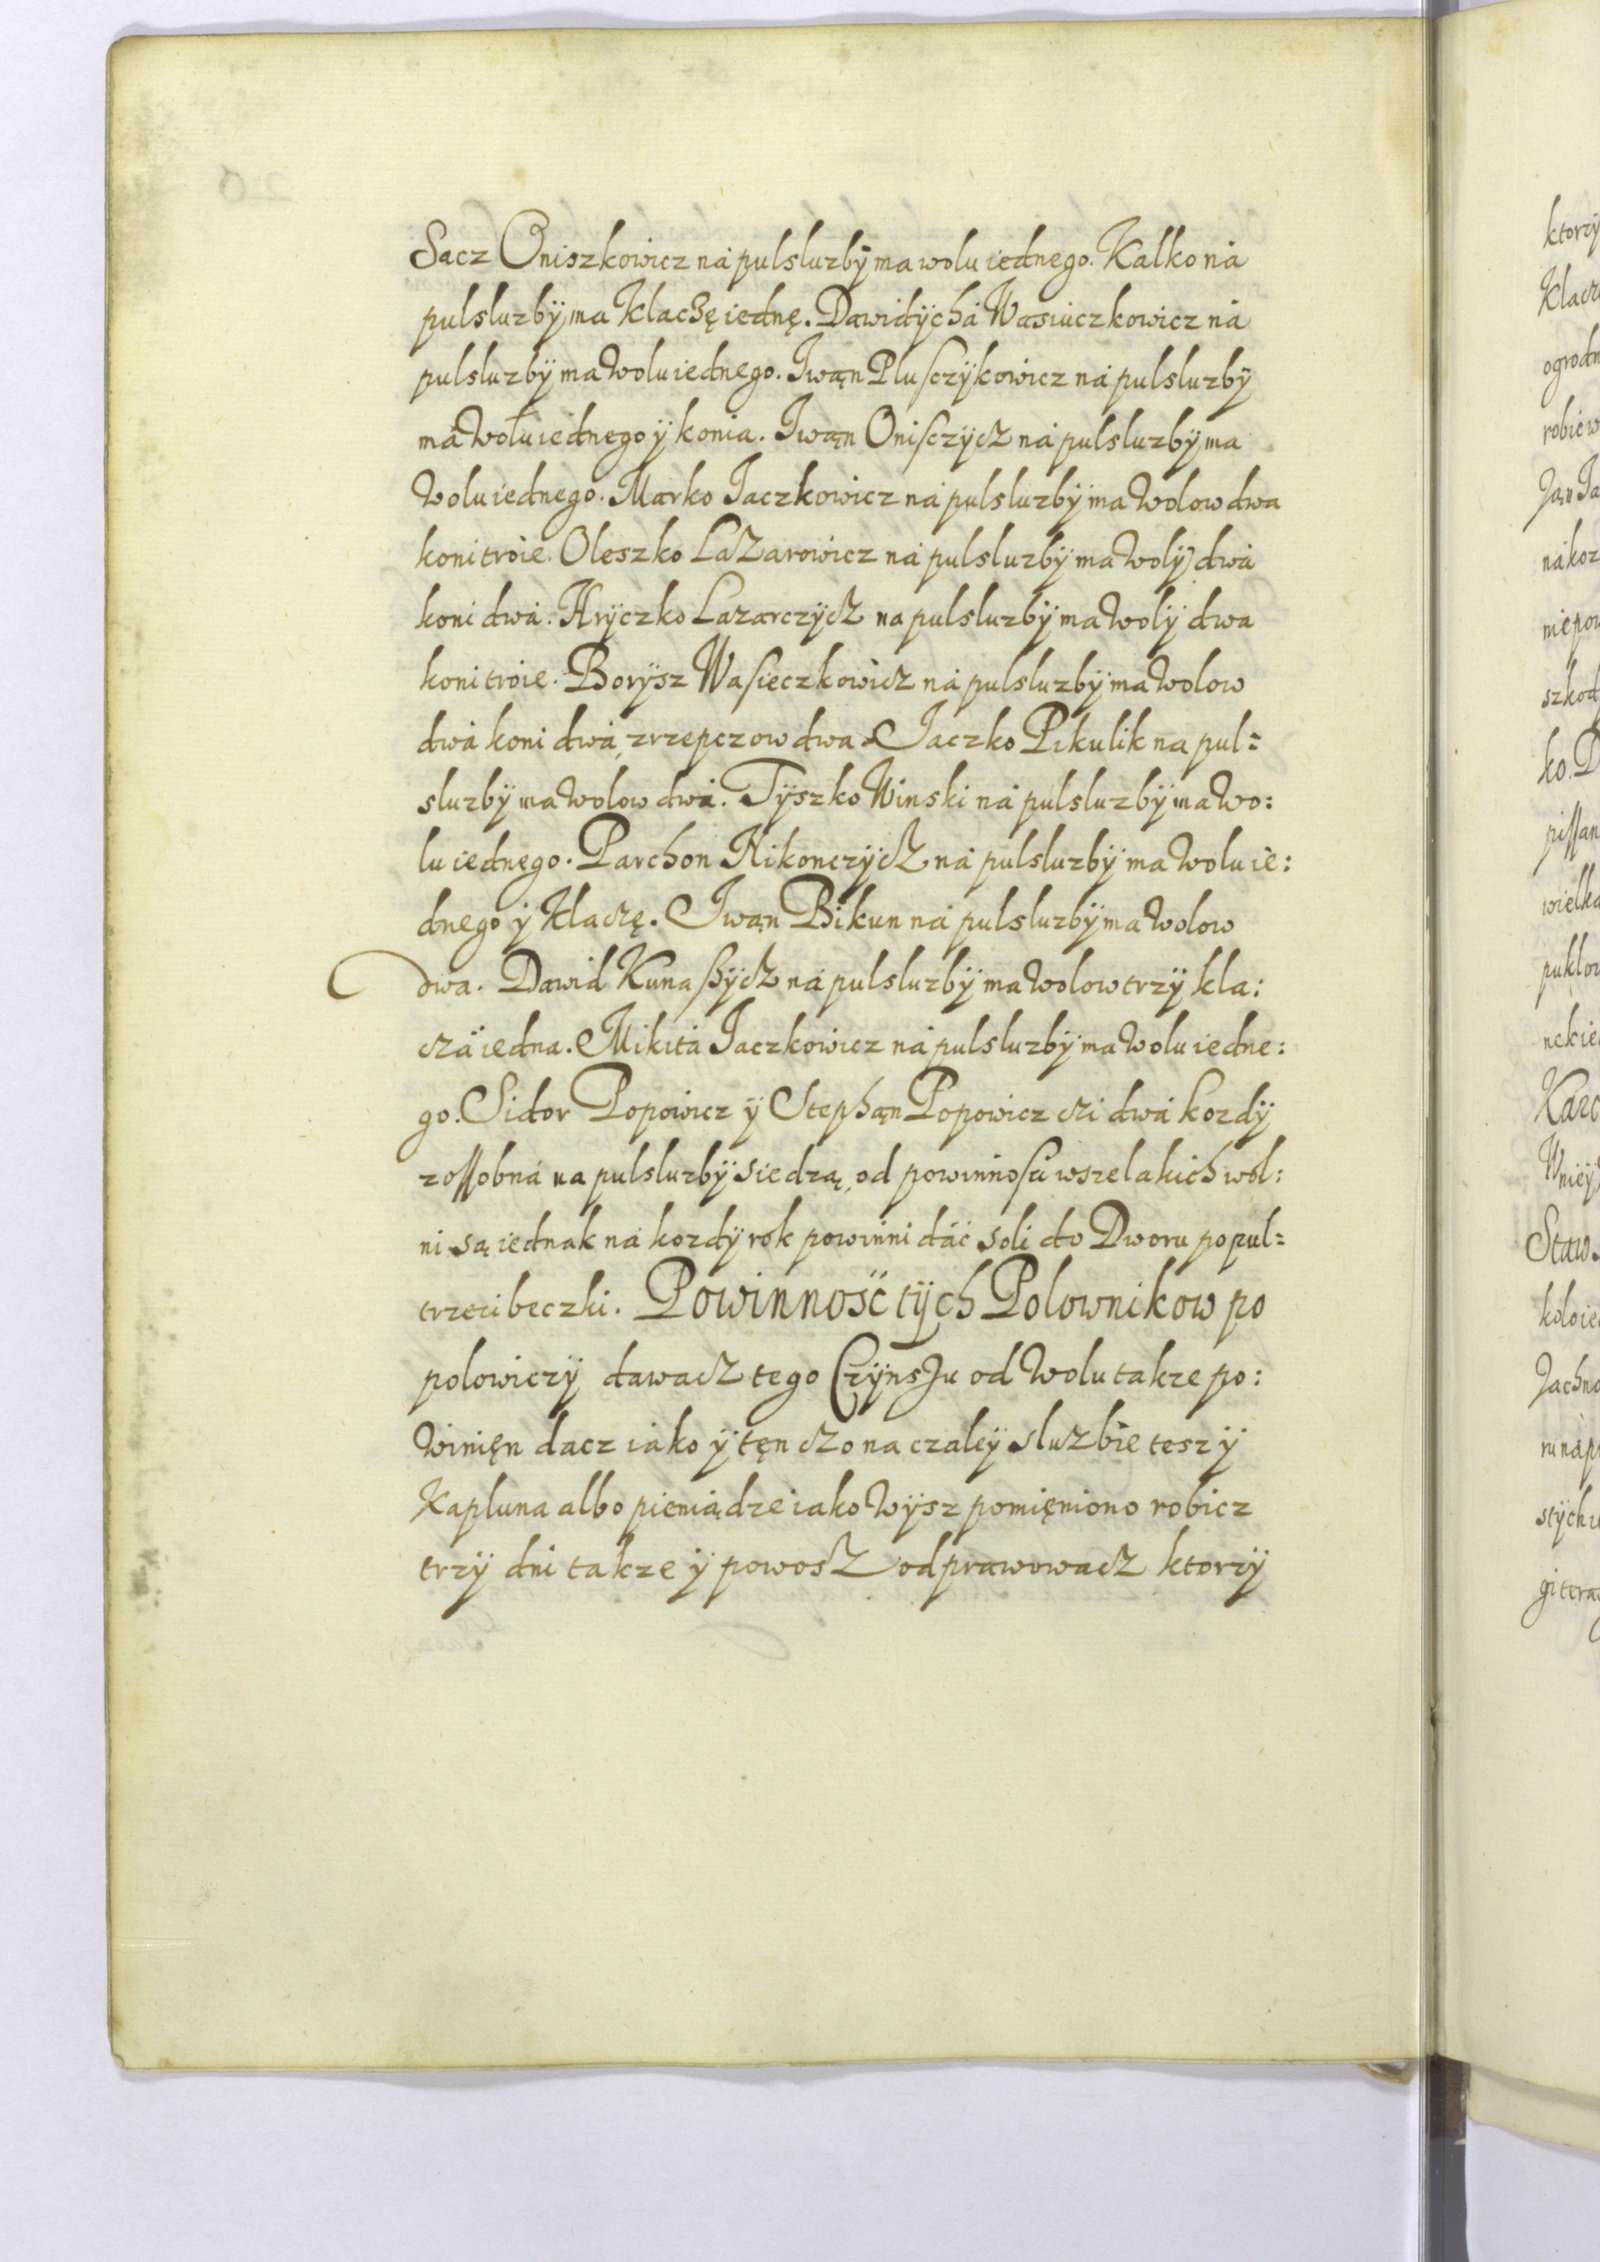 Sacz Oniszkowicz ná pulsluzbÿ ma wolu iednego. Kalko ná
pulsluzbÿ ma Klaczę iednę. Dawidÿchá Wasiuczkowicz ná
pulsluzbÿ ma Wolu iednego. Iwąn Plusczÿkowicz ná pulsluzbÿ
má Wołu iednego ÿ konia. Iwąn Onisczÿcz ná pulsluzbÿ ma
Wolu iednego. Marko Iaczkowicz ná pulsluzbÿ ma Wolow dwa
koni troie. Oleszko Lazarowicz ná pulsluzbÿ ma Wolÿ dwá
koni dwá. Hrÿczko Lazarczÿcz na pulsluzbÿ ma Wolÿ dwa
koni troie. Borÿsz Wasieczkowicz ná pulsluzbÿ ma Wolow
dwá koni dwá, zrzepczow dwa. Iaczko Pikulik na pul=
sluzbÿ ma Wolow dwá. Tÿszko Winski ná pulsluzbÿ ma Wo:
lu iednego. Parchon Nikonczÿcz ná pulsluzbÿ ma Wolu ie:
dnego ÿ Klaczę. Iwąn Bikun ná pulsluzbÿ ma Wolow
dwa. Dawid Kunaßÿcz ná pulsluzbÿ ma Wolow trzÿ kla:
czá iedna. Mikitá Iaczkowicz ná pulsluzbÿ ma Wolu iedne:
go. Sidor Popowicz ÿ Stephąn Popowicz czi dwá kozdÿ
zossobná na pulsluzbÿ siedzą, od powinnosci wszelakich wol:
ni są iednak ná kozdÿ rok powinni dáć soli do Dworu po pul=
trzeci beczki. Powinność tÿch Polownikow po
polowiczÿ dawacz tego Czÿnszu od Wolu takze po:
Winięn dacz iako ÿ tęn czo na czaleÿ sluzbie tesz ÿ
Kapluna albo pieniądze iako Wÿsz pomięniono robicz
trzÿ dni takze ÿ powosz odprawowacz ktorzÿ
ktorzÿ
ogrodn
szkod
ko. D
wielka
Staw